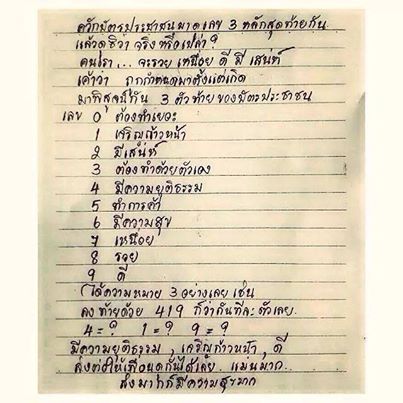 ควักบัตรประชาชนมาดูเลข 3 หลักสุดท้ายกัน
แล้วดูซิว่า จริงหรือเปล่า ?
คนเรา... จะรวย เหนื่อย ดี มี เสน่ห์
เค้าว่า ถูกกำหนดมาตั้งแต่เกิด
มาพิสูจน์กัน 3 ตัวท้าย ของบัตรประชาชน
เลข 0 ต้องทำเยอะ
1 เจริญก้าวหน้า
2 มีเสน่ห์
3 ต้องทำด้วยตัวเอง
4 มีความยุติธรรม
5 ทำการค้า
6 มีความสุข
7 เหนื่อย
8 รวย
9 ดี
ได้ความหมาย 3 อย่างเลย เช่น
ลงท้ายด้วย 419 ก็ว่ากันทีละตัวเลย
4 = ? 1 = ? 9 = ?
มีความยุติธรรม , เจริญก้าวหน้า , ดี
ส่งต่อให้เพื่อนดูกันได้เลย.. แม่นมาก..
ส่งมาให้มีความสุขมาก